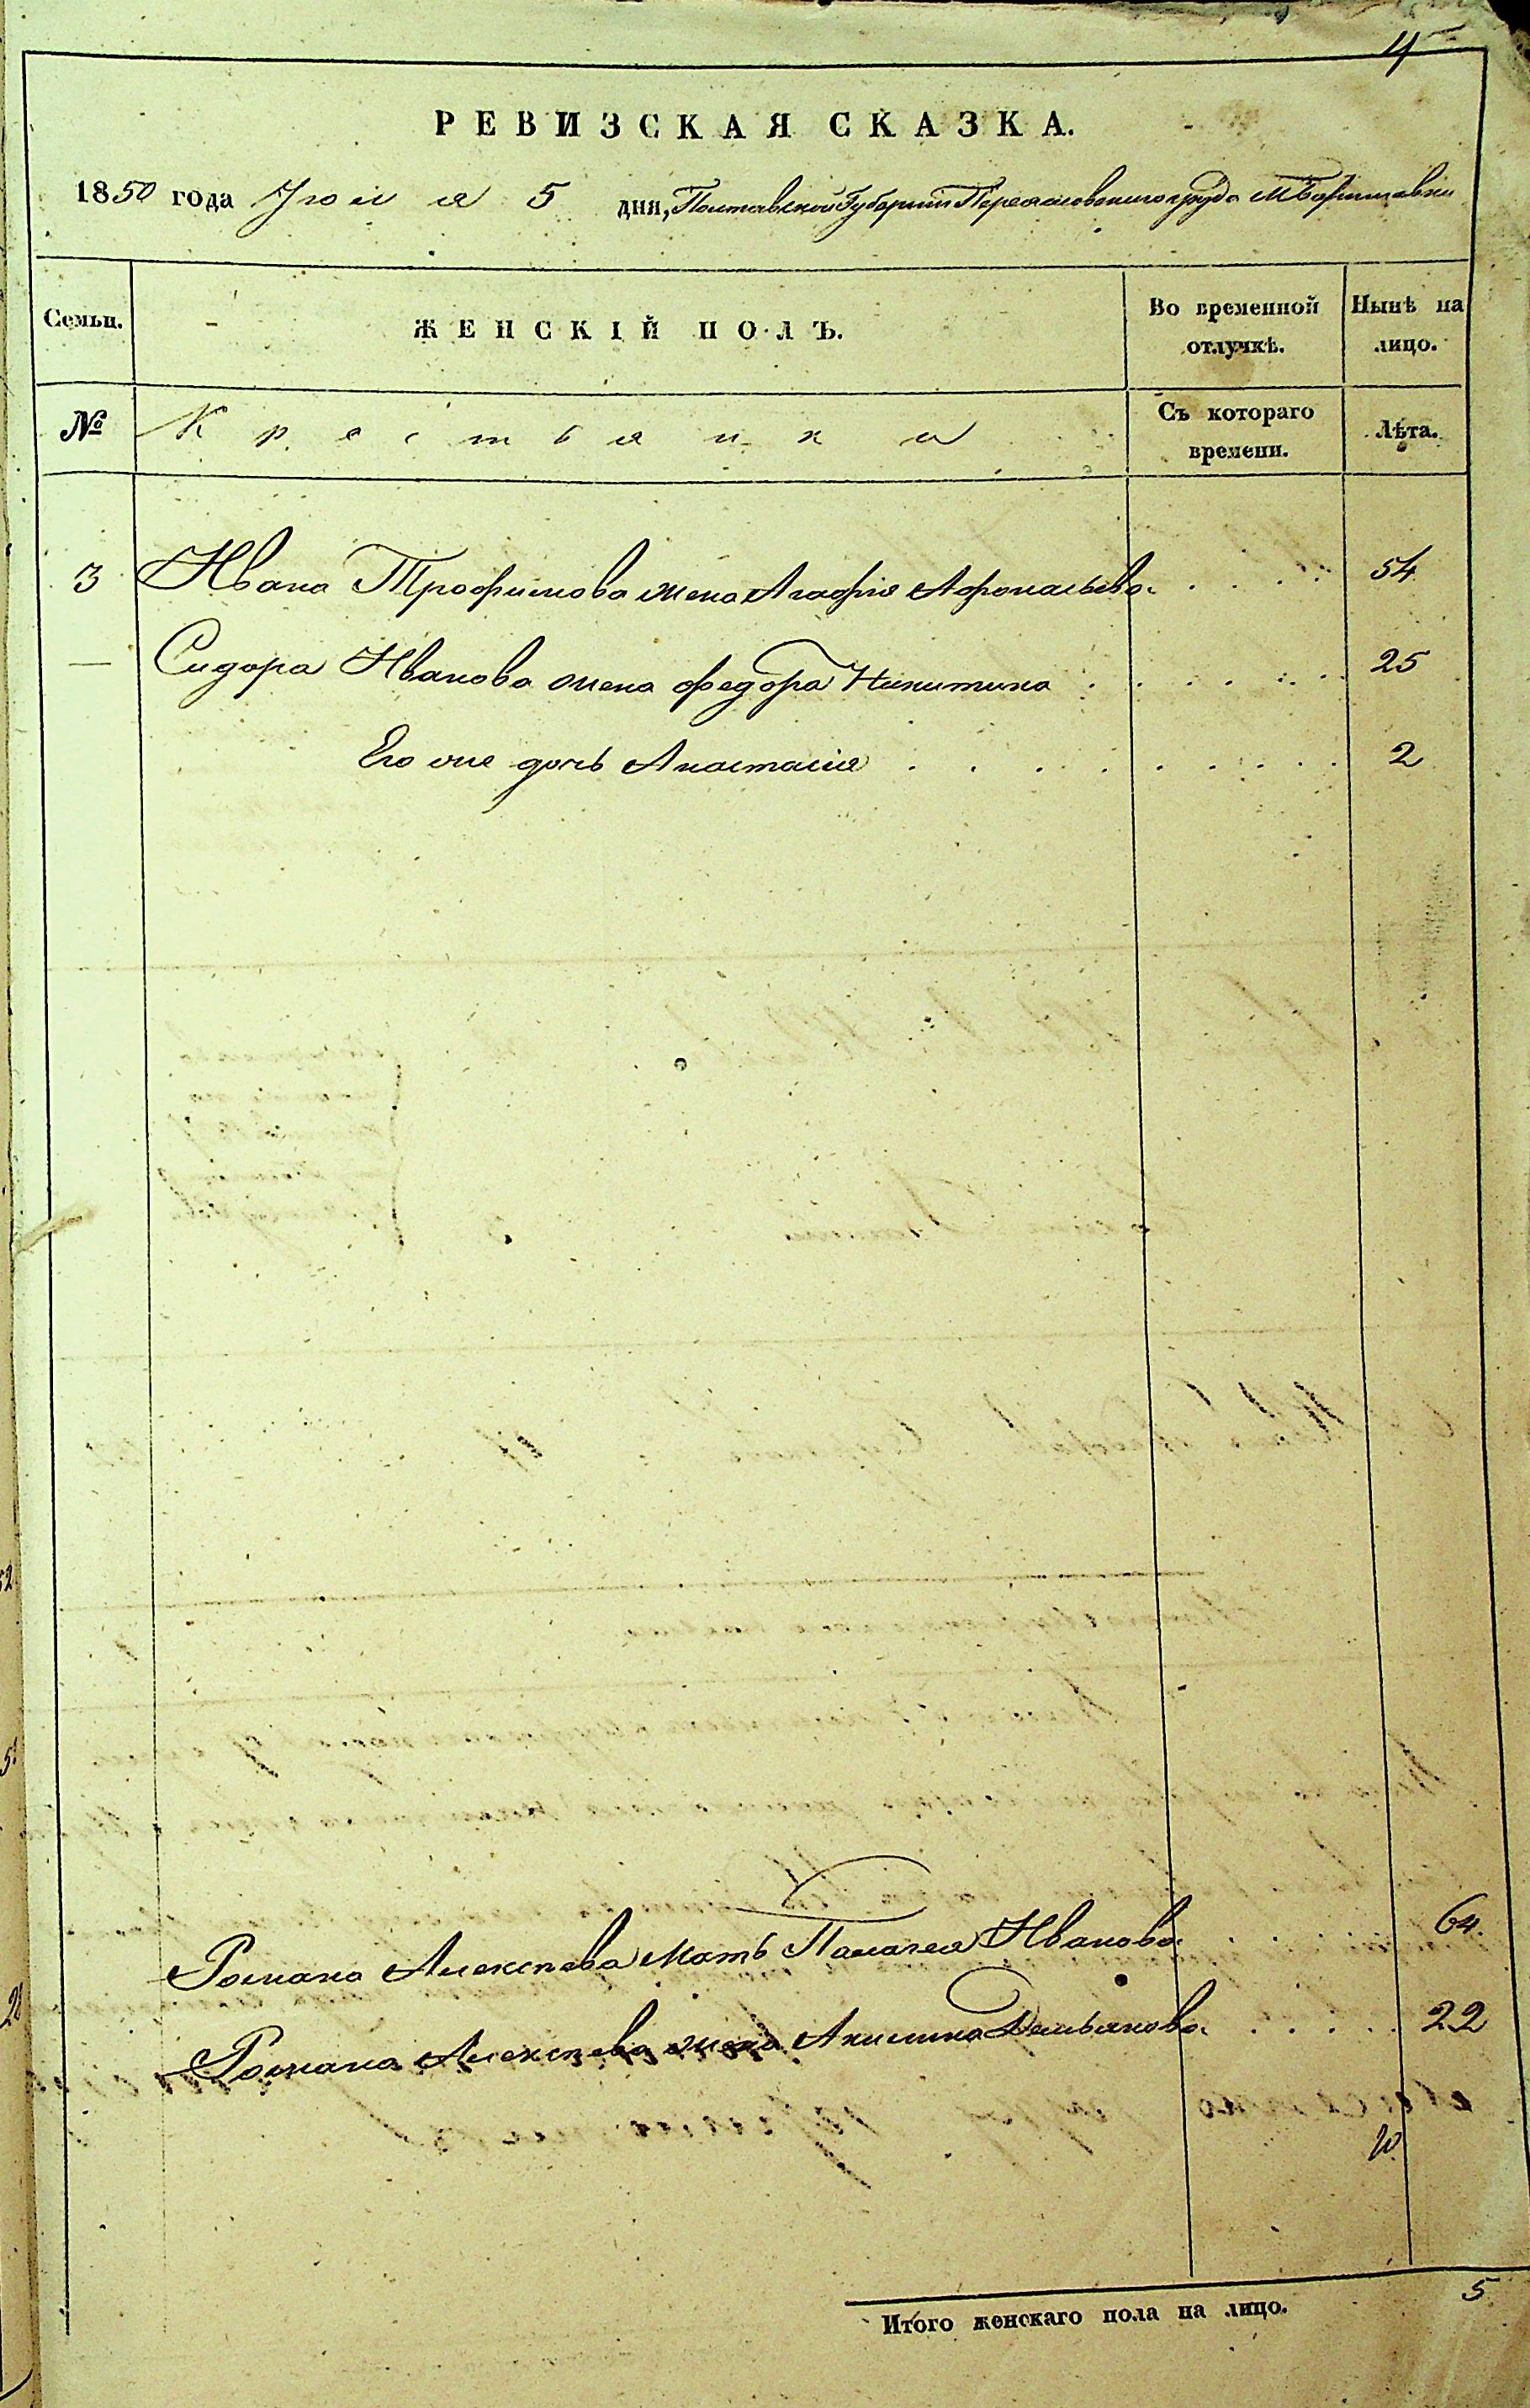 4
РЕВИЗСКАЯ СКАЗКА.
1850 года Июля 5 дня, Полтавской Губернии Переяловского уезда М Боришовки
Семьи. ЖЕНСКІЙ ПОЛЪ. Во временной отлучкѣ. Нынѣ на лицо.
№ Крестьянка Съ котораго времени. Лѣта.
3 Ивана Трофимова жена Агафія Афонасьева 54
— Сидора Иванова жена Федора Никитина 25
Его же дочь Анастасія 2
Романа Алексѣева мать Палагея Иванова 64.
Романа Алексѣева жена Акилина Демьянова 22
Итого женскаго пола на лицо. 5